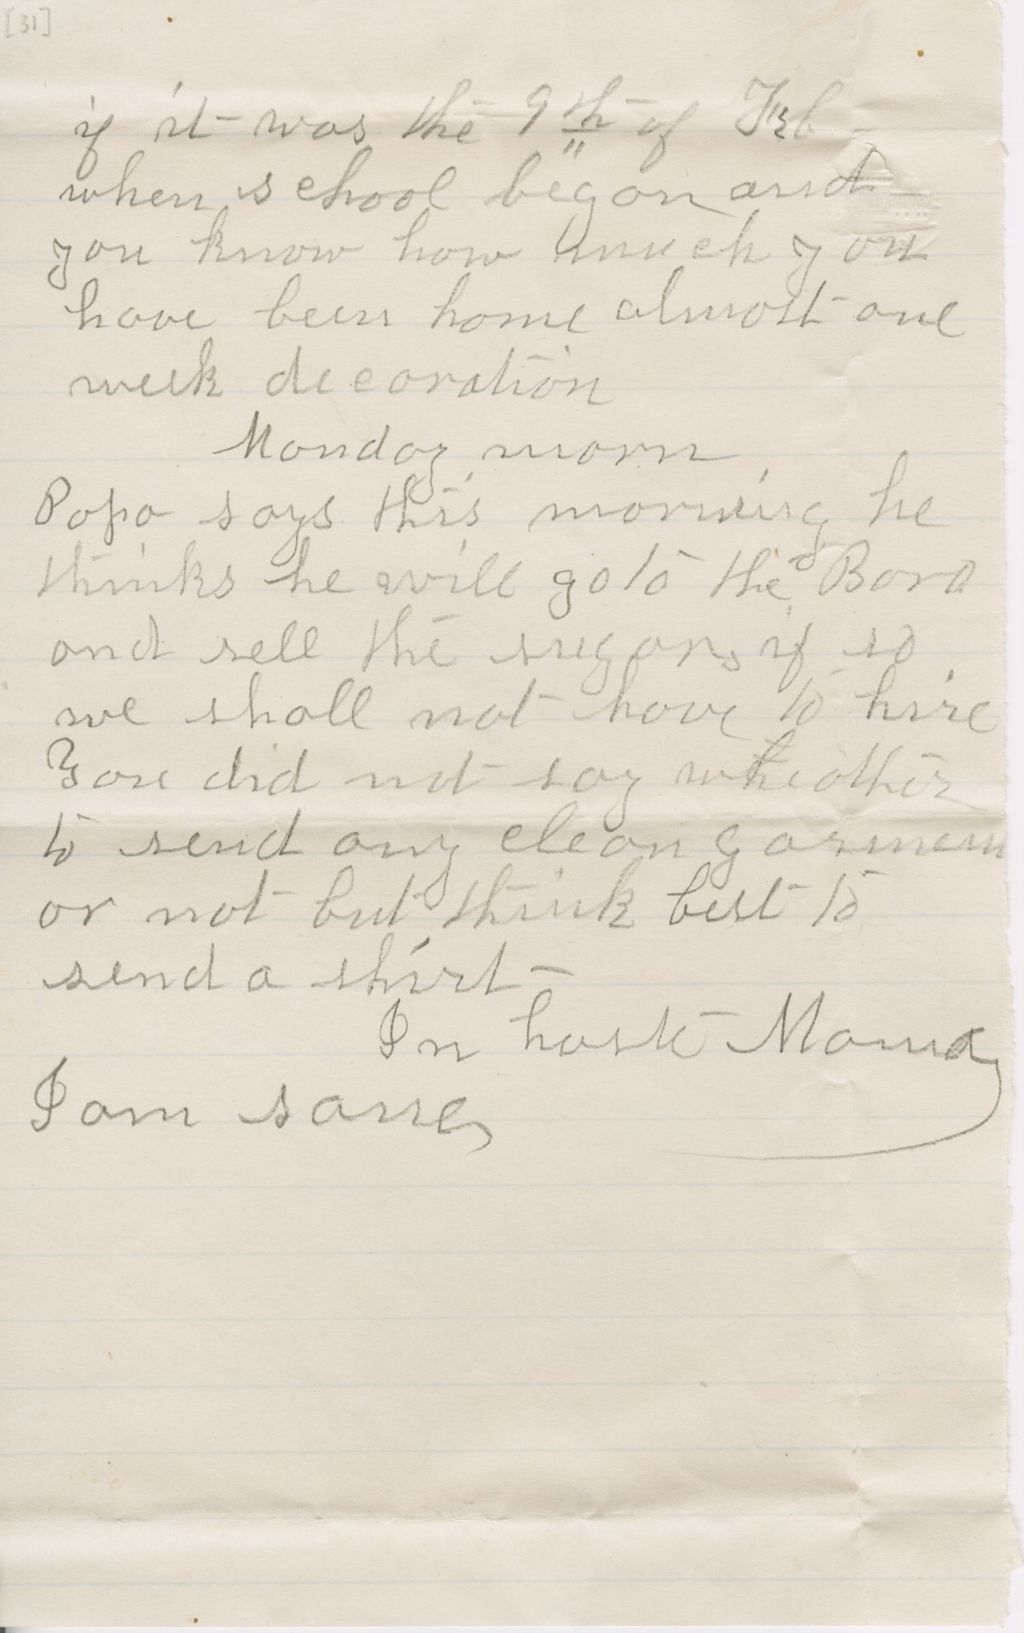 [31]
if it was the 9th of Feb
when school began and
you know how much you
have been home almost one
week decoration
Monday morn
Papa says this morning he
thinks he will go to the Boro
and sell the sugar, if so
we shall not have to hire
You did not say wheather
to send any clean garmen
or not but think best to
send a shirt
In haste Mama
I am same